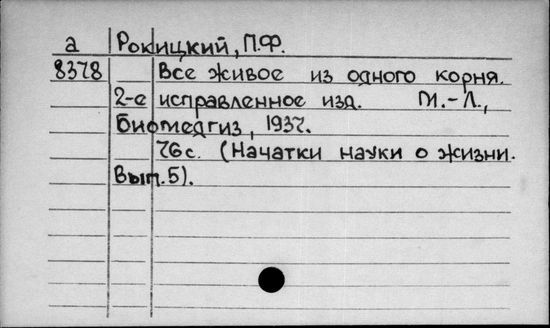 а Рокицкий, П.Ф.
8378 Все живое из одного корня.
2-е исправленное изд. М.-Л.,
Биомедгиз, 1937.
76с. (Начатки науки о жизни.
Вып.5).